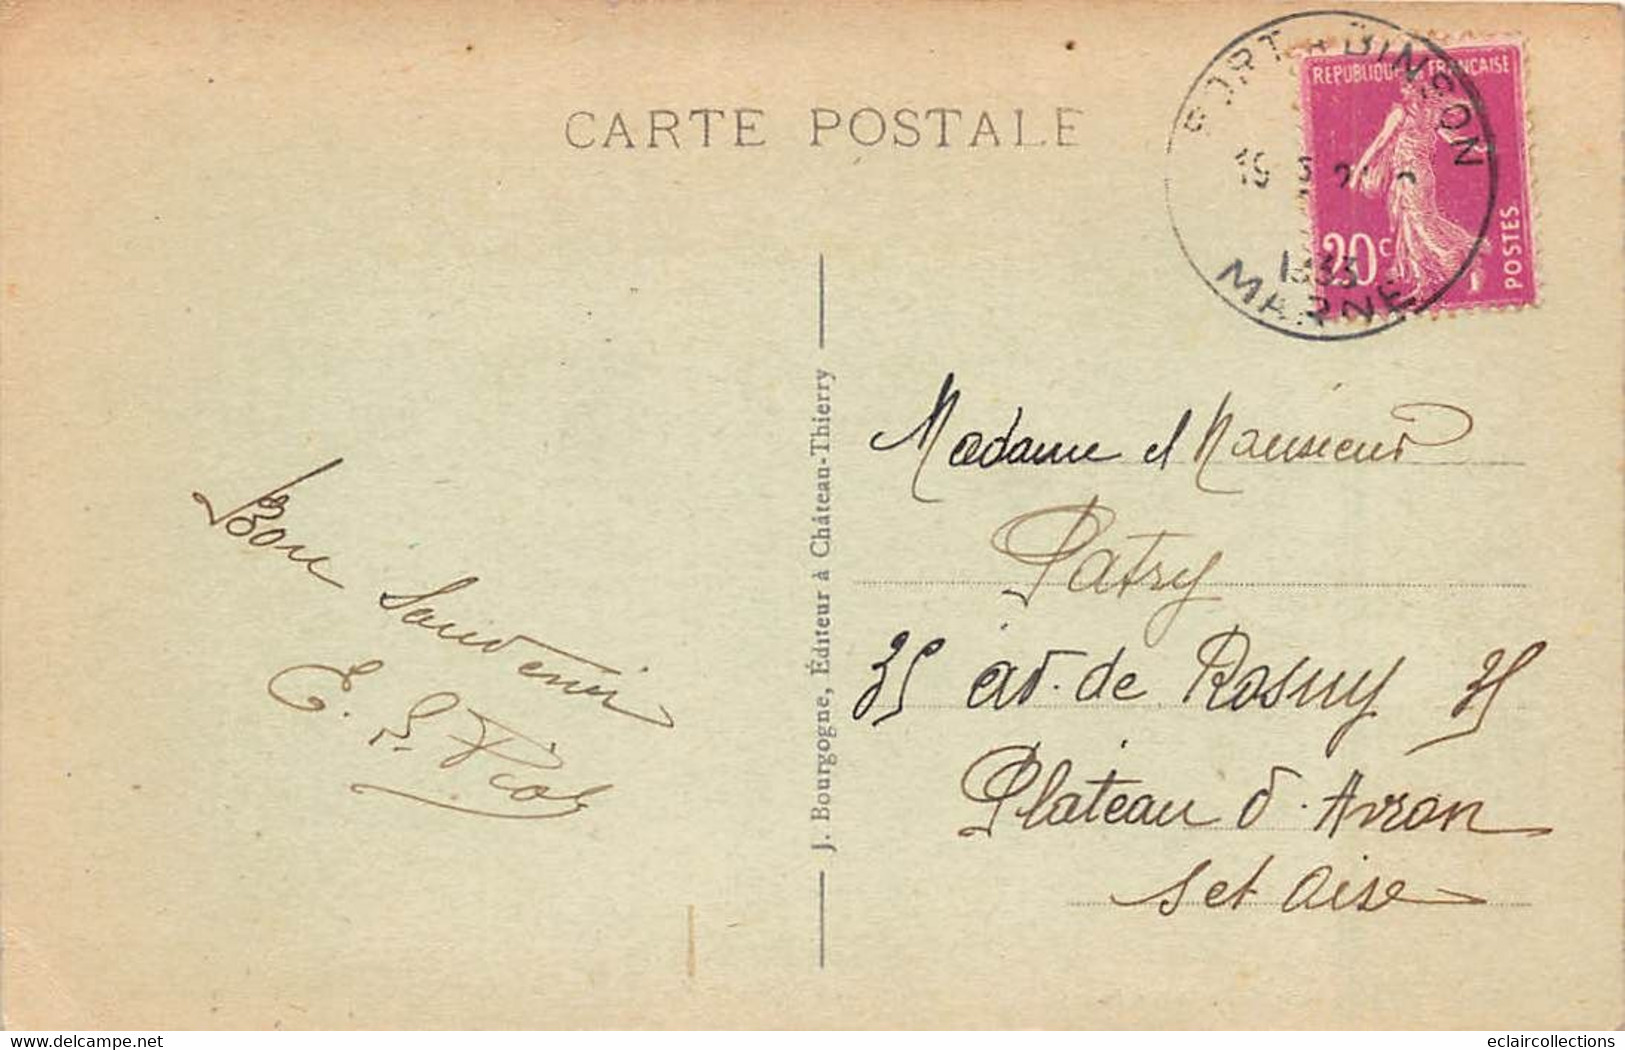 CARTE POSTALE
PORT A BINSON
MARNE
REPUBLIQUE FRANCAISE
20c
POSTES
J. Bourgogne, Éditeur à Château-Thierry
Bon
Souvenir
Madame et Monsieur
Patry
35 av. de Rosny 35
Plateau d'Avron
S et Oise
Delcampe.net
eclaircollections